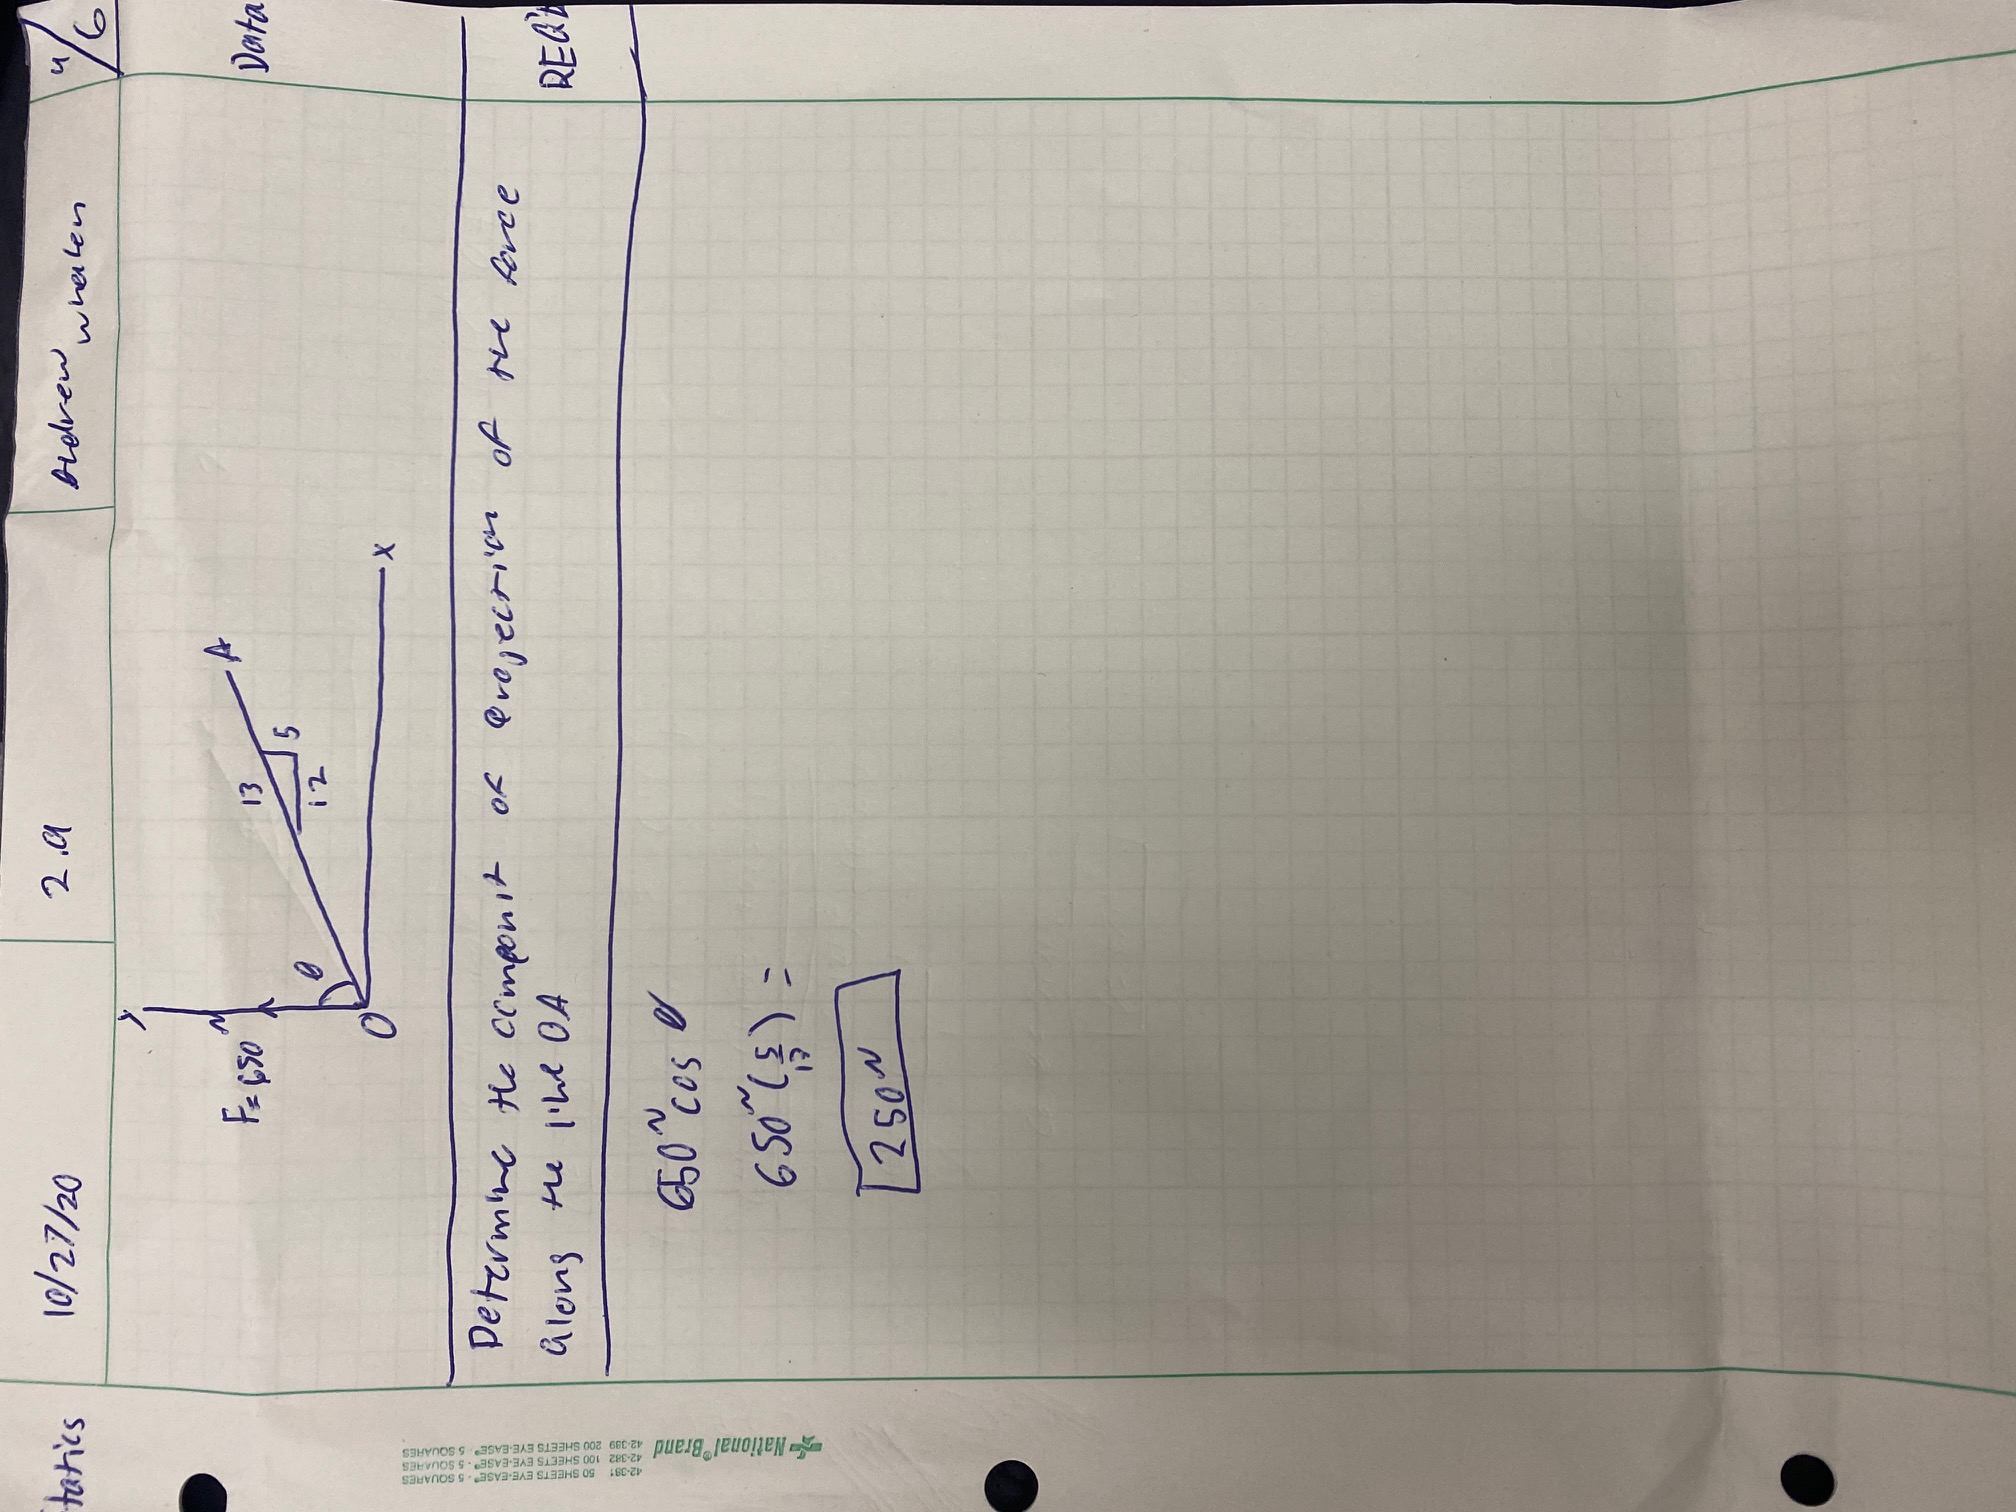 tatics
10/27/20
2.9
Andrew Whalen
4/6
y
F=650 N
θ
13
5
12
A
O
x
Data
Determine the componit of Projection of the force
along the line OA
REQ'D
650 N cos θ
650 N (5/13) =
250 N
42-381 50 SHEETS EYE-EASE® - 5 SQUARES
42-382 100 SHEETS EYE-EASE® - 5 SQUARES
42-389 200 SHEETS EYE-EASE® - 5 SQUARES
National®Brand